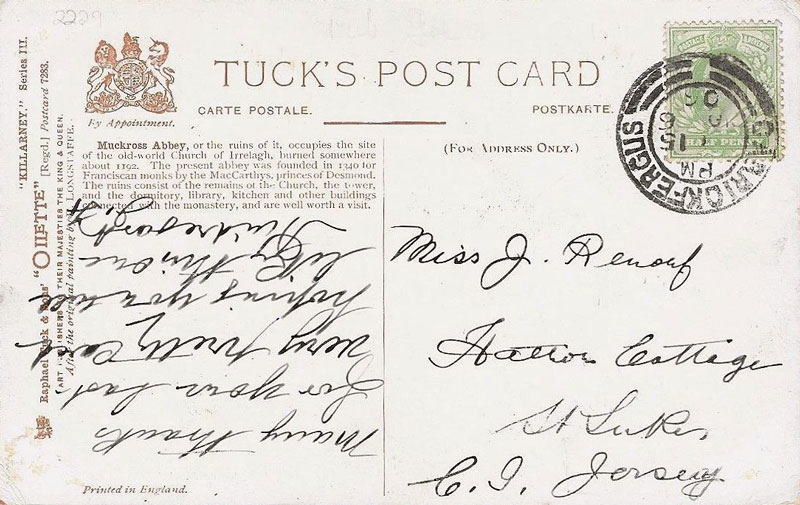 2229
"KILLARNEY." Series III.
Raphael Tuck & Sons' "OILETTE" [Regd.] Postcard 7283.
ART PUBLISHERS TO THEIR MAJESTIES THE KING & QUEEN.
After the original painting by LONGSTAFFE.
By Appointment.
TUCK'S POST CARD
CARTE POSTALE.
POSTKARTE.
(For Address Only.)
Muckross Abbey, or the ruins of it, occupies the site
of the old-world Church of Irrelagh, burned somewhere
about 1192. The present abbey was founded in 1340 for
Franciscan monks by the MacCarthys, princes of Desmond.
The ruins consist of the remains of the Church, the tower,
and the dormitory, library, kitchen and other buildings
connected with the monastery, and are well worth a visit.
Many thanks
for your last
very pretty card
hoping you will
like this one
Kind regards
CARRICKFERGUS
PM
15
06
HALF PENNY
Miss J. Renouf
Hatton Cottage
St Lukes
C. I. Jersey
Printed in England.